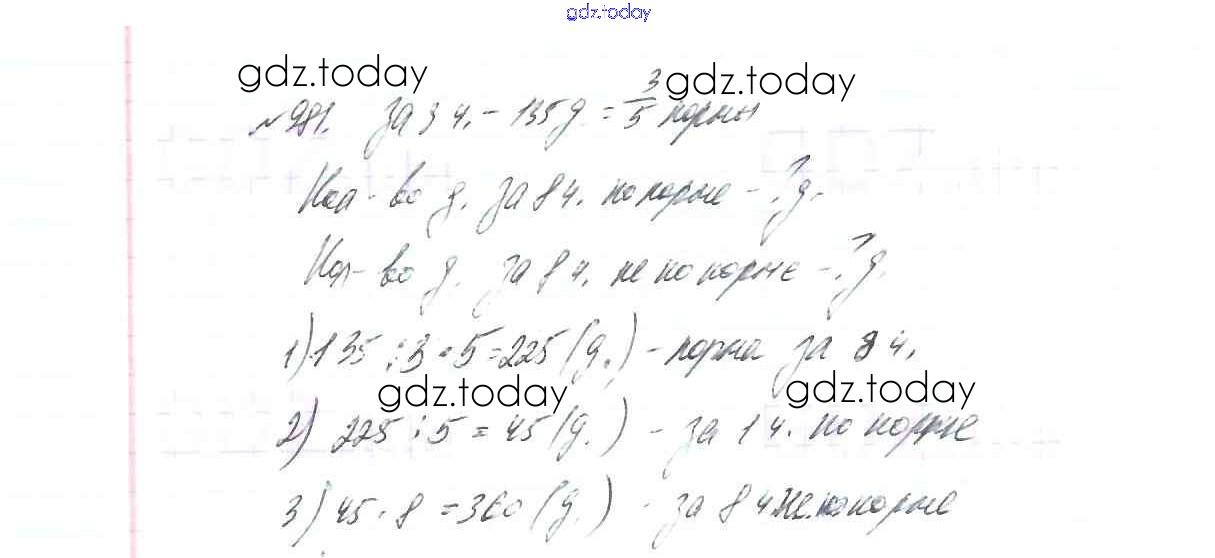 gdz.today
gdz.today gdz.today
№981. За 3 ч. - 135 д. = 3/5 нормы
Кол-во д. за 8 ч. по норме - ? д.
Кол-во д. за 8 ч. не по норме - ? д.
1) 135 : 3 · 5 = 225 (д.) - норма за 8 ч.
gdz.today gdz.today
2) 225 : 5 = 45 (д.) - за 1 ч. по норме
3) 45 · 8 = 360 (д.) - за 8 ч не по норме